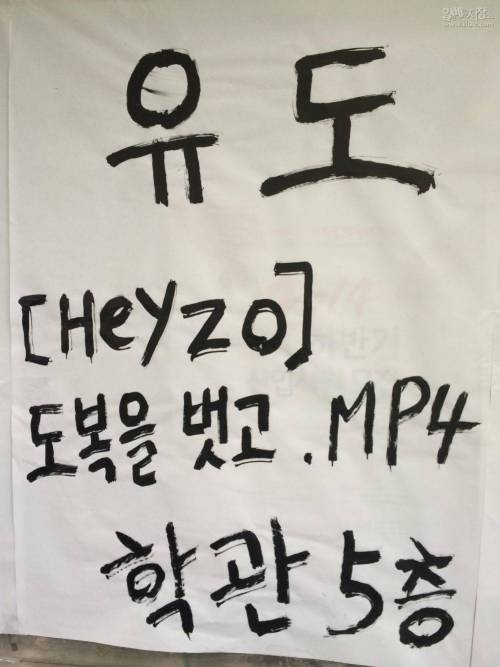 유도
[Heyzo]
도복을 벗고.MP4
학관 5층